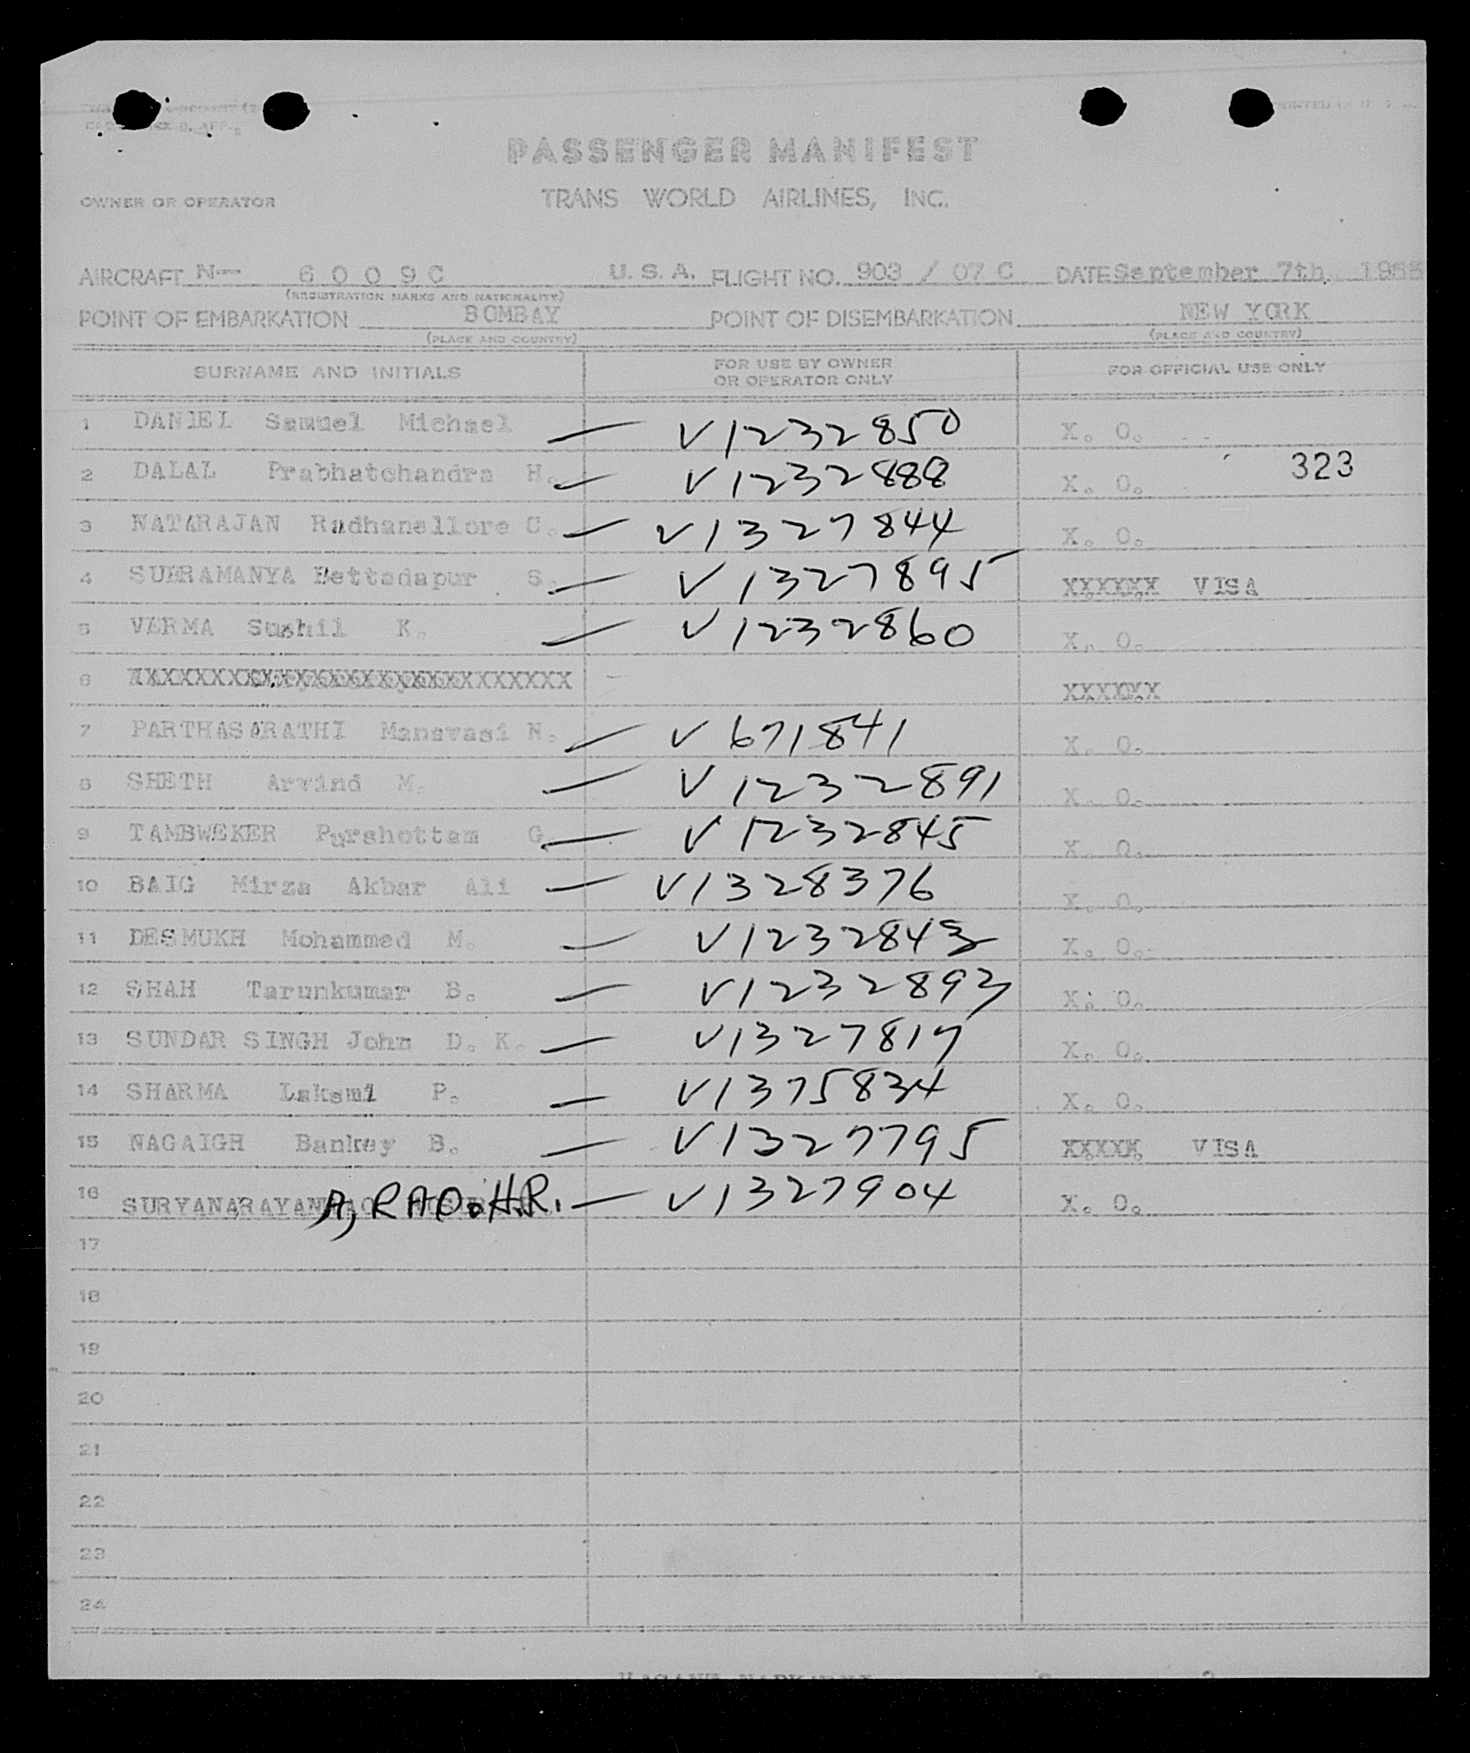 PASSENGER MANIFEST
OWNER OR OPERATOR TRANS WORLD AIRLINES, INC.
AIRCRAFT N-- 6 0 0 9 C U. S. A. FLIGHT NO. 903 / 07 C DATE September 7th, 195
(REGISTRATION MARKS AND NATIONALITY)
POINT OF EMBARKATION BOMBAY POINT OF DISEMBARKATION NEW YORK
(PLACE AND COUNTRY) (PLACE AND COUNTRY)
SURNAME AND INITIALS FOR USE BY OWNER OR OPERATOR ONLY FOR OFFICIAL USE ONLY
1 DANIEL Samuel Michael — V1232850 X. O.
323
2 DALAL Prabhatchandra H. — V1232888 X. O.
3 NATARAJAN Radhanellore C. — V1327844 X. O.
4 SUBRAMANYA Bettadapur S. — V1327895 XXXXXX VISA
5 VERMA Sushil K. — V1232860 X. O.
6 XXXXXXXXXXXXXXXXXXXXXXXXXXX XXXXXX
7 PARTHASARATHI Manavasi N. — V671841 X. O.
8 SHETH Arvind M. — V1232891 X. O.
9 TAMBWEKER Purshottam G. — V1232845 X. O.
10 BAIG Mirza Akbar Ali — V1328376 X. O.
11 DESMUKH Mohammed M. — V1232843 X. O.
12 SHAH Tarunkumar B. — V1232893 X. O.
13 SUNDAR SINGH John D. K. — V1327817 X. O.
14 SHARMA Laksmi P. — V1375834 X. O.
15 NAGAIGH Bankey B. — V1327795 XXXXX VISA
16 SURYANARAYAN A, RAO. H.R. — V1327904 X. O.
17
18
19
20
21
22
23
24